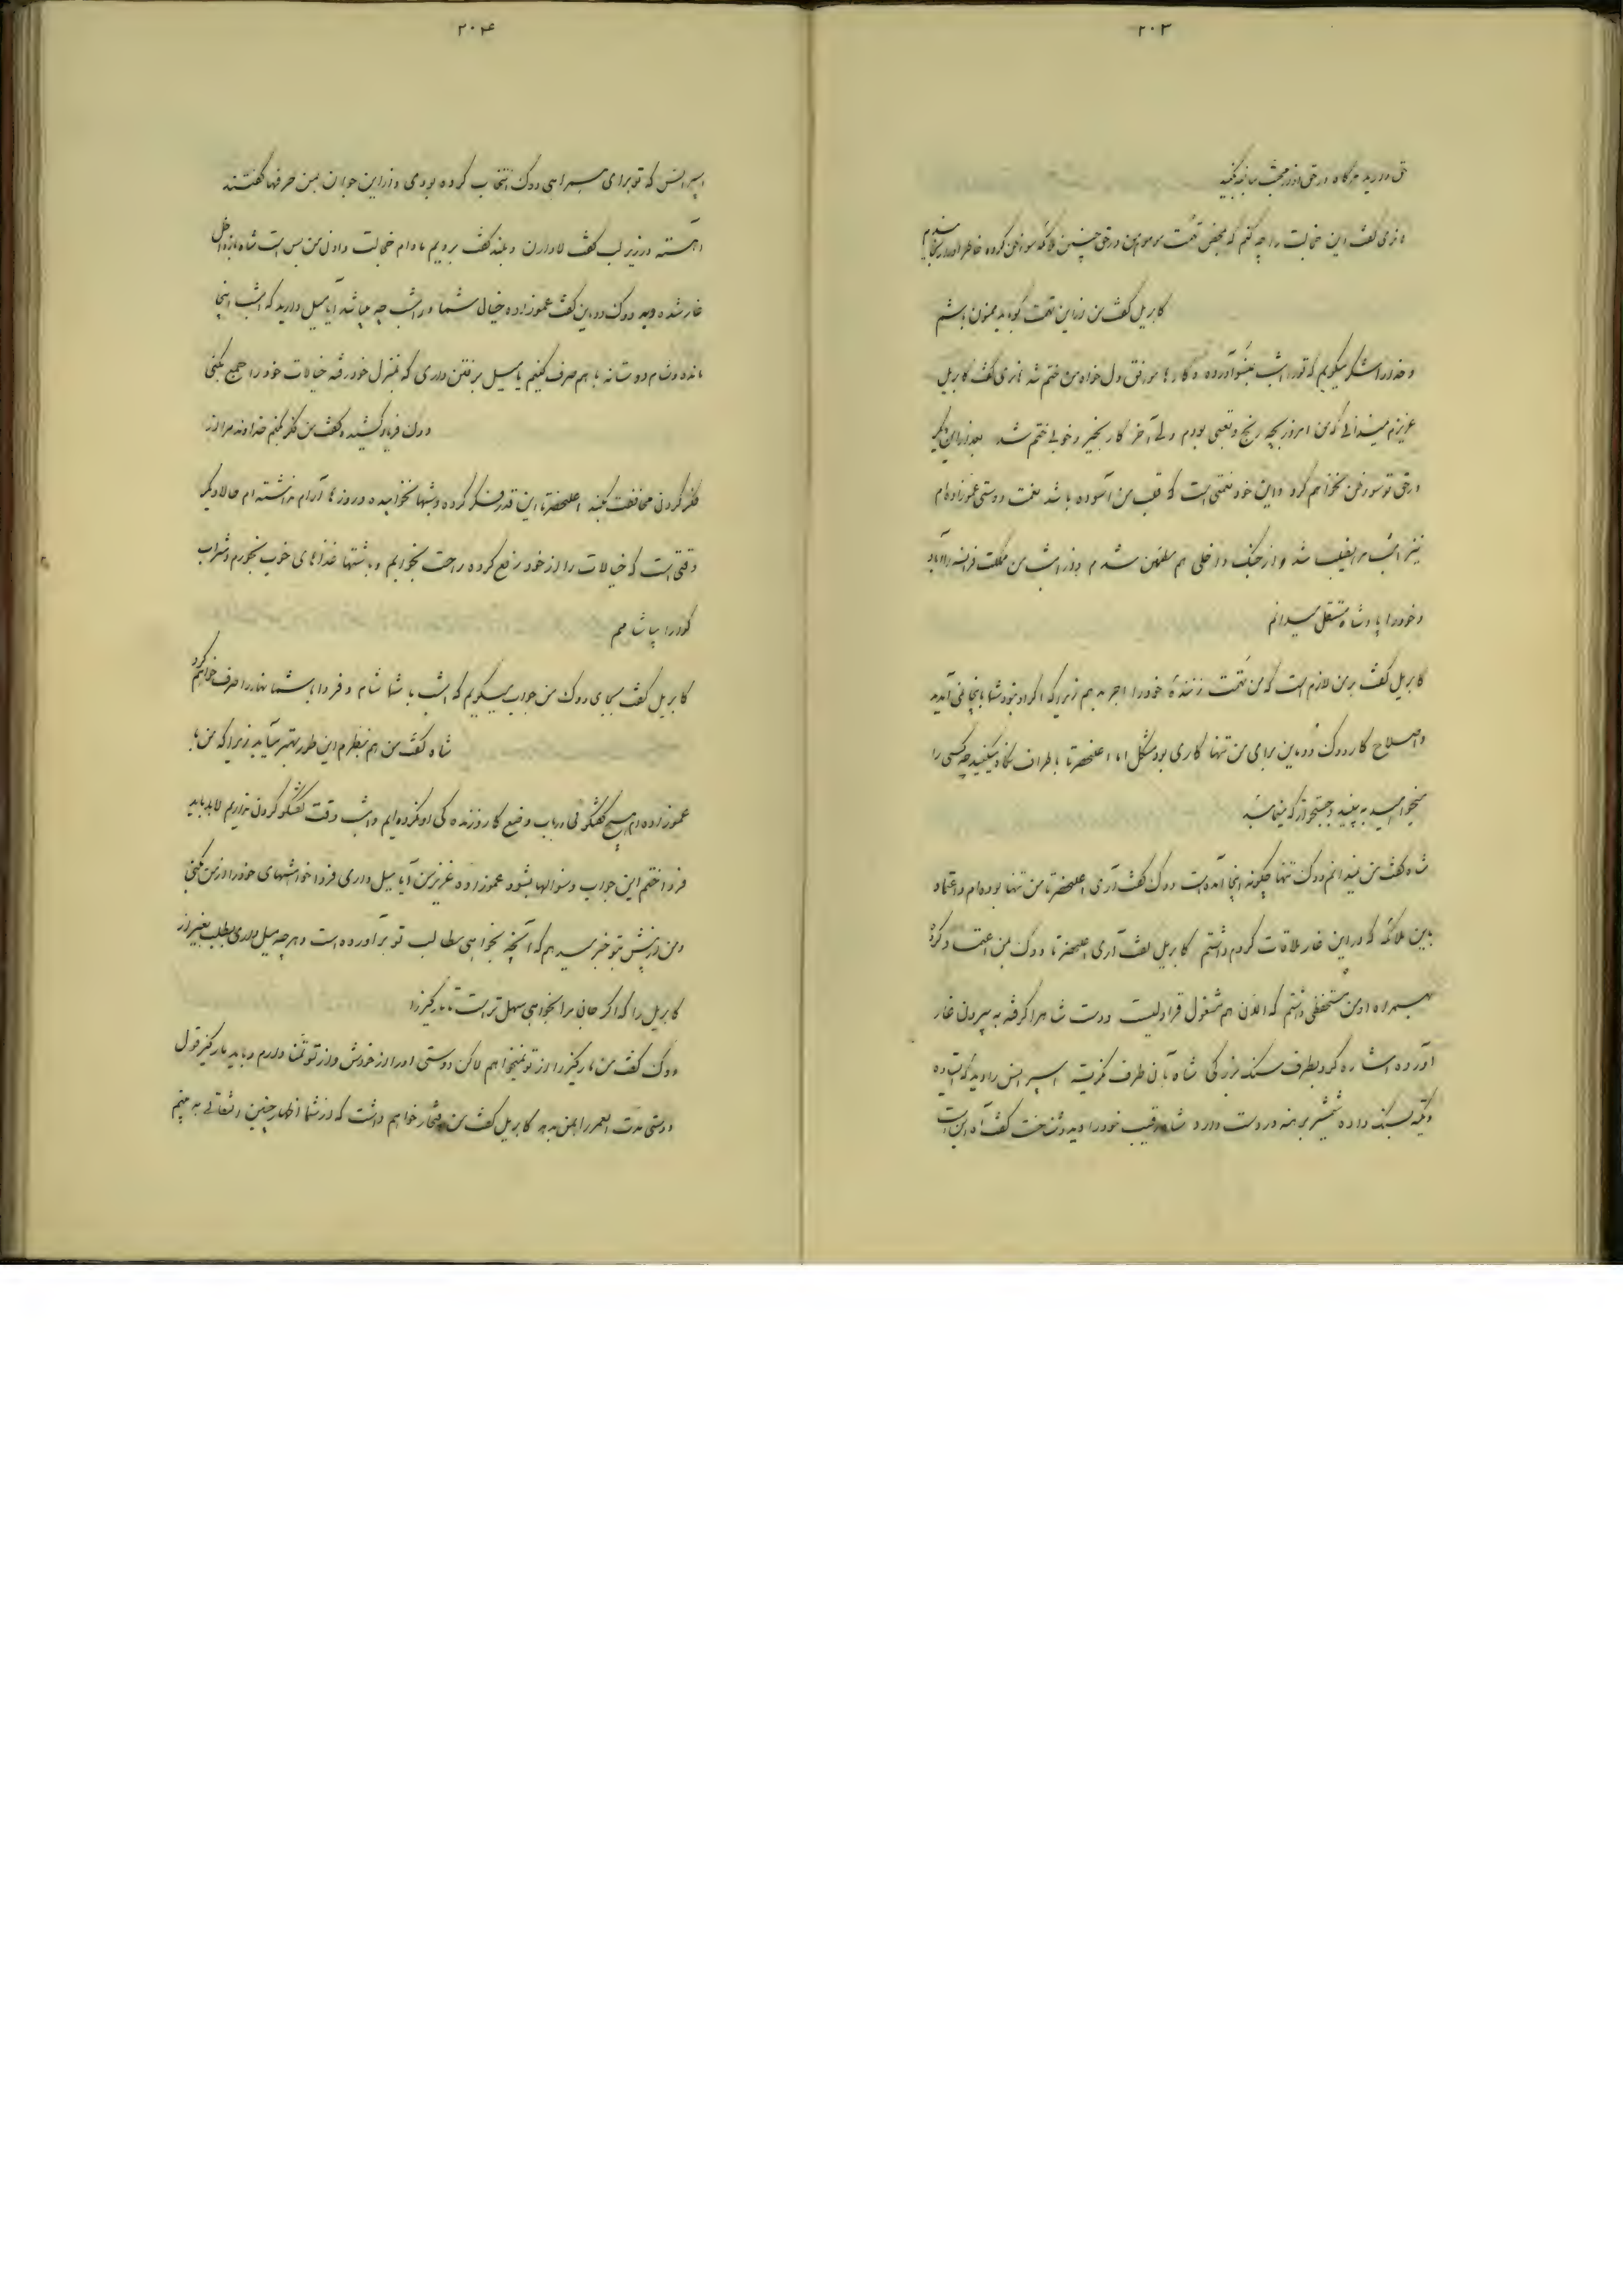 ۲۰۳
حق دارید هرگاه در حق او زحمت
هانری گفت این خجالت را چه کنم که محض تهمت مردم من در حق چنین ملائکه سوءظن کرده خاطر او را رنجانیدم
کابریل گفت من از این تهمت باید ممنون باشم
و خدا را شکر میکویم که تو را امشب اینجا آورده و کارها موافق دلخواه من ختم شد هانری گفت کابریل
عزیزم میدانی که من امروز بچه رنج و تعبی بودم ولی آخر کار بخیر و خوبی ختم شد بعد از این دیگر
در حق تو سوءظن نخواهم کرد و این خود نعمتی است که قلب من آسوده باشد نعمت دوستی عموزاده‌ام
نیز امشب مرا نصیب شد و از جنک داخلی هم مطمئن شدم و از امشب من مملکت فرانسه را آباد
و خود را پادشاه مستقل میدانم
کابریل گفت بر من لازم است که من تهمت زننده خود را اجر بدهم زیرا که اگر او نبود شما باینجا نمی آمدید
و اصلاح کار دوک دومین برای من تنها کاری بود مشکل اما اعلیحضرتا باطراف نگاه میکنید چه کسی را
میخواهید به بینید و جستجو از که مینمائید
شاه گفت من نمیدانم دوک تنها چگونه اینجا آمده است دوک گفت آری اعلیحضرتا من تنها بوده‌ام و اعتماد
باین ملائکه که در این غار ملاقات کردم داشتم کابریل گفت آری اعلیحضرتا دوک بمن اعتماد کرد
همراه او من مستحفظی داشتم که الان هم مشغول قراولیست و دست شاه را گرفته به بیرون غار
آورده اشاره کرد بطرف سنک بزرکی شاه بآن طرف نگریست اسپرانس را دید که ایستاده
و تکیه بسنک داده شمشیر برهنه در دست دارد شاه رقیب خود را دید و شناخت گفت آه این است
۲۰۴
اسپرانس که تو برای همراهی دوک انتخاب کرده بودی و از این جوان بمن حرفها گفتند
آهسته در زیر لب گفت لاوارن و بلند گفت برویم مادام خجالت دادن من بس است شاه باز داخل
غار شده دید دوک دومین گفت عموزاده خیال شما در امشب چه میباشد آیا میل دارید که امشب اینجا
مانده و شام دوستانه با هم صرف کنیم یا میل برفتن داری که بمنزل خود رفته خیالات خود را جمع بکنی
دوک فریاد کشیده گفت من فکر بکنم خداوند مرا از
فکر کردن محافظت بکند اعلیحضرتا این قدر فکر کرده و شبها نخوابیده و روزها آرام نداشته‌ام حالا دیگر
وقتی است که خیالات را از خود رفع کرده راحت بخوابم و باشتها غذاهای خوب بخورم و شراب
گوارا بیاشامم
کابریل گفت بجای دوک من جواب میگویم که امشب با شما شام و فردا با شما نهار را صرف خواهیم کرد
شاه گفت من هم بنظرم این طور بهتر میآید زیرا که من با
عموزاده‌ام هیچ گفتگوئی در باب وضع کار و زنده گی او نکرده‌ایم و امشب وقت گفتگو کردن نداریم لابد باید
فردا ختم این جواب و سئوالها بشود عموزاده عزیز من آیا میل داری فردا خواهشهای خود را از من بکنی
و من از پیش بتو خبر میدهم که آنچه بخواهی مطالب تو برآورده است و هر چه میل داری بطلب بغیر از
کابریل را که اگر جان مرا بخواهی سهل تر است تا مارکیز را
دوک گفت من مارکیز را از تو نمیخواهم لاکن دوستی او را از خودش و از تو تمنا دارم و باید مارکیز قول
دوستی مدت العمر را بمن بدهد کابریل گفت من افتخار خواهم داشت که از شما اظهار چنین التفاتی به بینم